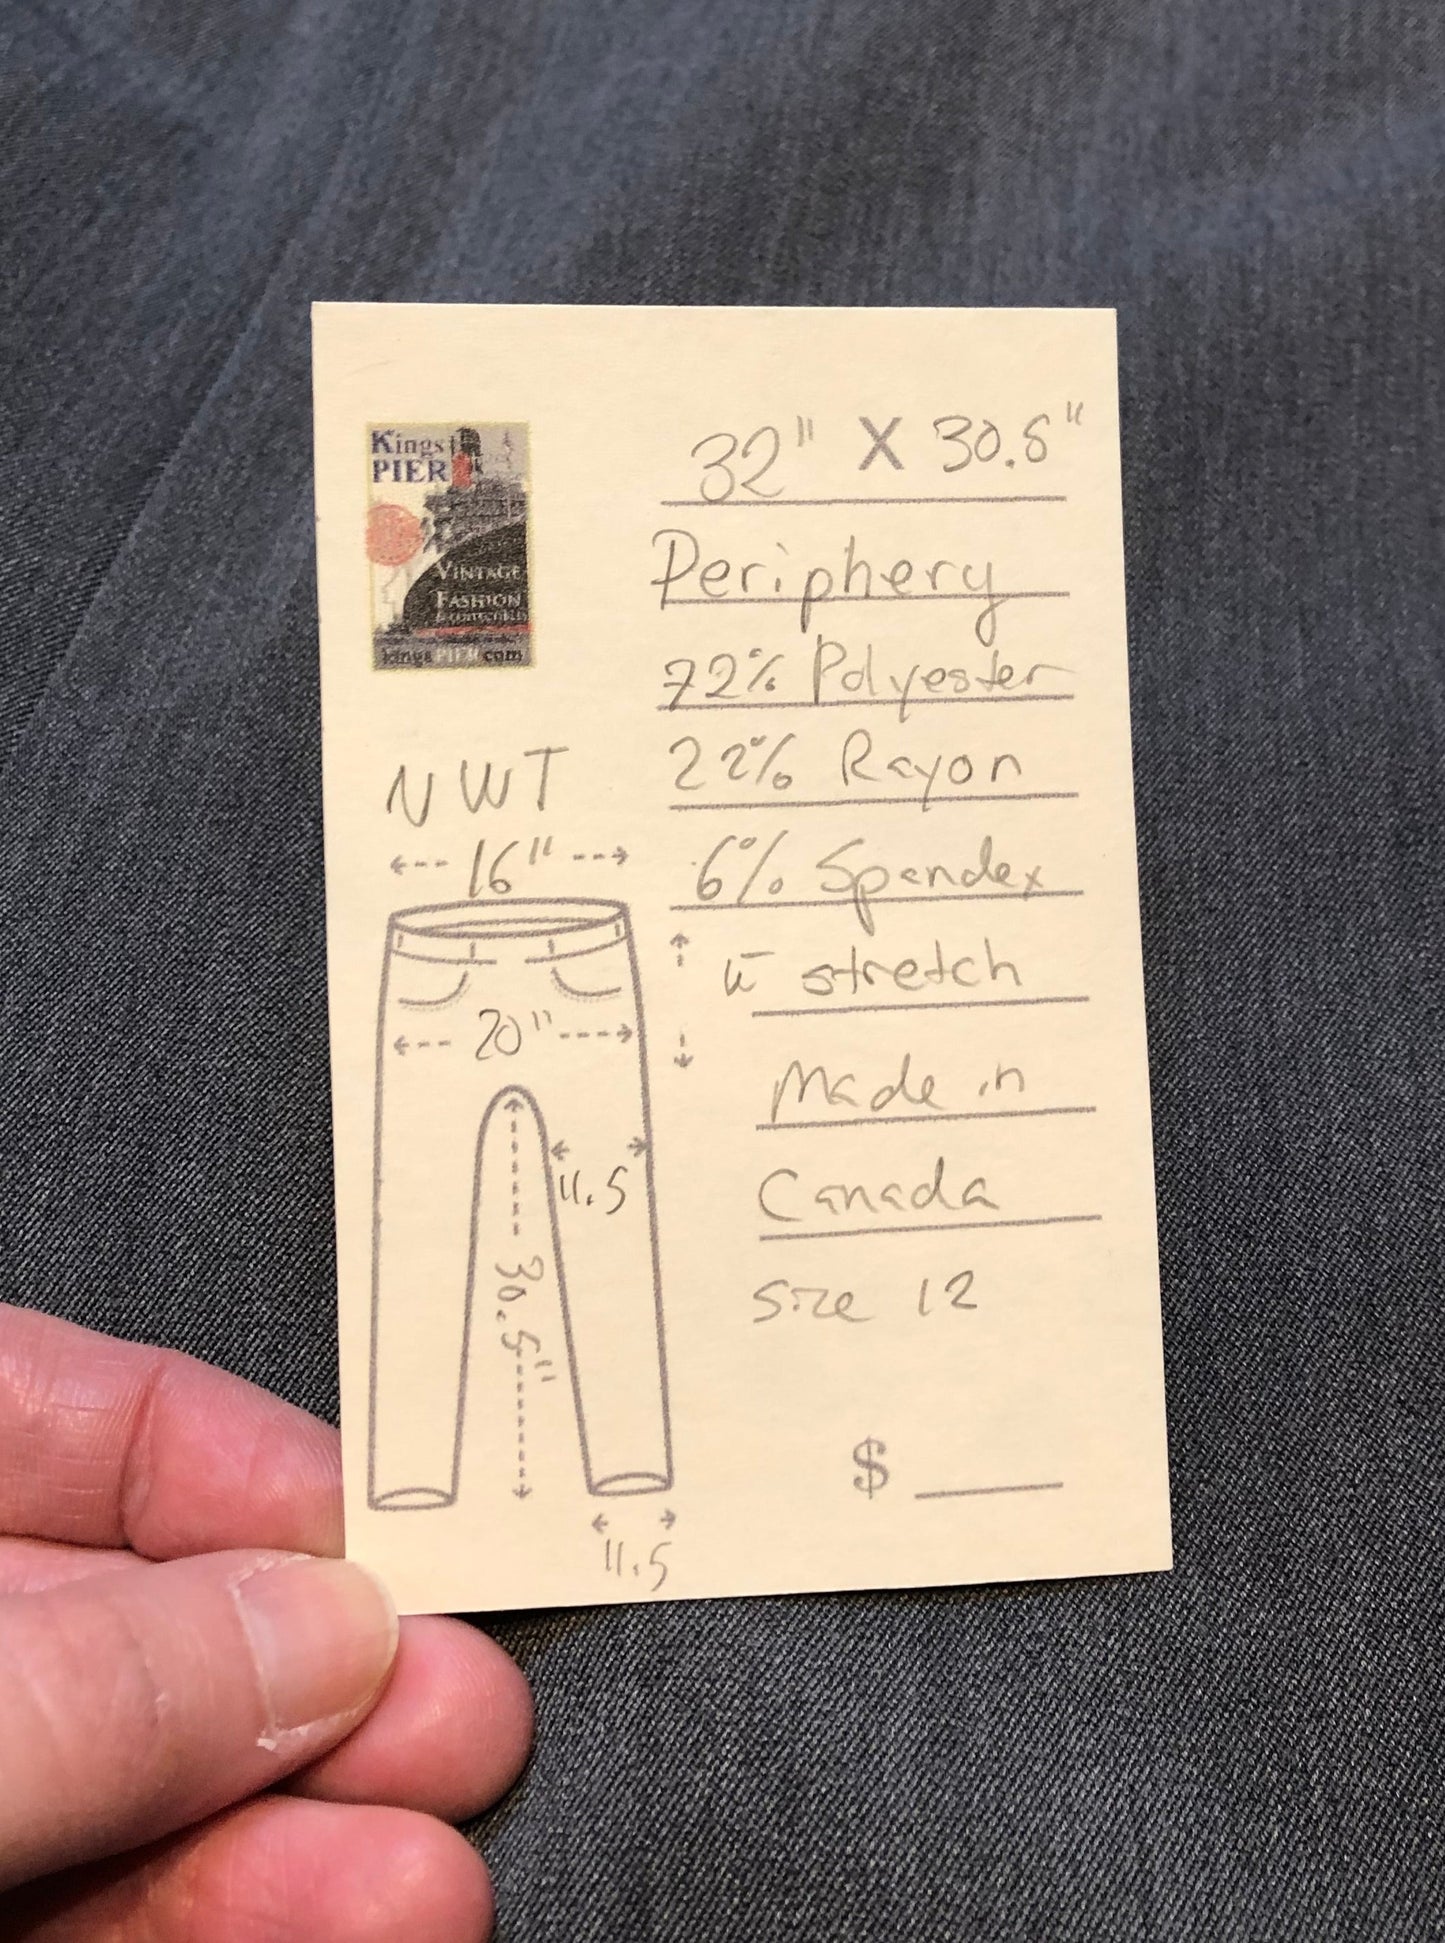 Kings
PIER
VINTAGE
FASHION
kingsPIER.com
32" X 30.5"
Periphery
72% Polyester
22% Rayon
6% Spandex
w̄ stretch
Made in
Canada
Size 12
$
NWT
16"
20"
11.5
30.5"
11.5